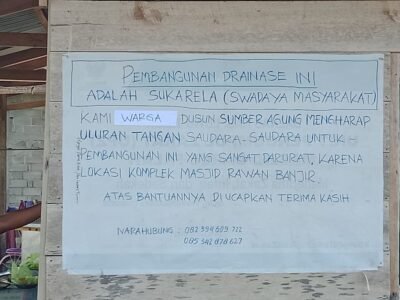 PEMBANGUNAN DRAINASE INI
ADALAH SUKARELA (SWADAYA MASYARAKAT)
KAMI WARGA DUSUN SUMBER AGUNG MENGHARAP
ULURAN TANGAN SAUDARA-SAUDARA UNTUK -
PEMBANGUNAN INI YANG SANGAT DARURAT, KARENA
LOKASI KOMPLEK MASJID RAWAN BANJIR.
ATAS BANTUANNYA DI UCAPKAN TERIMA KASIH
NARAHUBUNG : 082 394 609 722
085 342 878 627